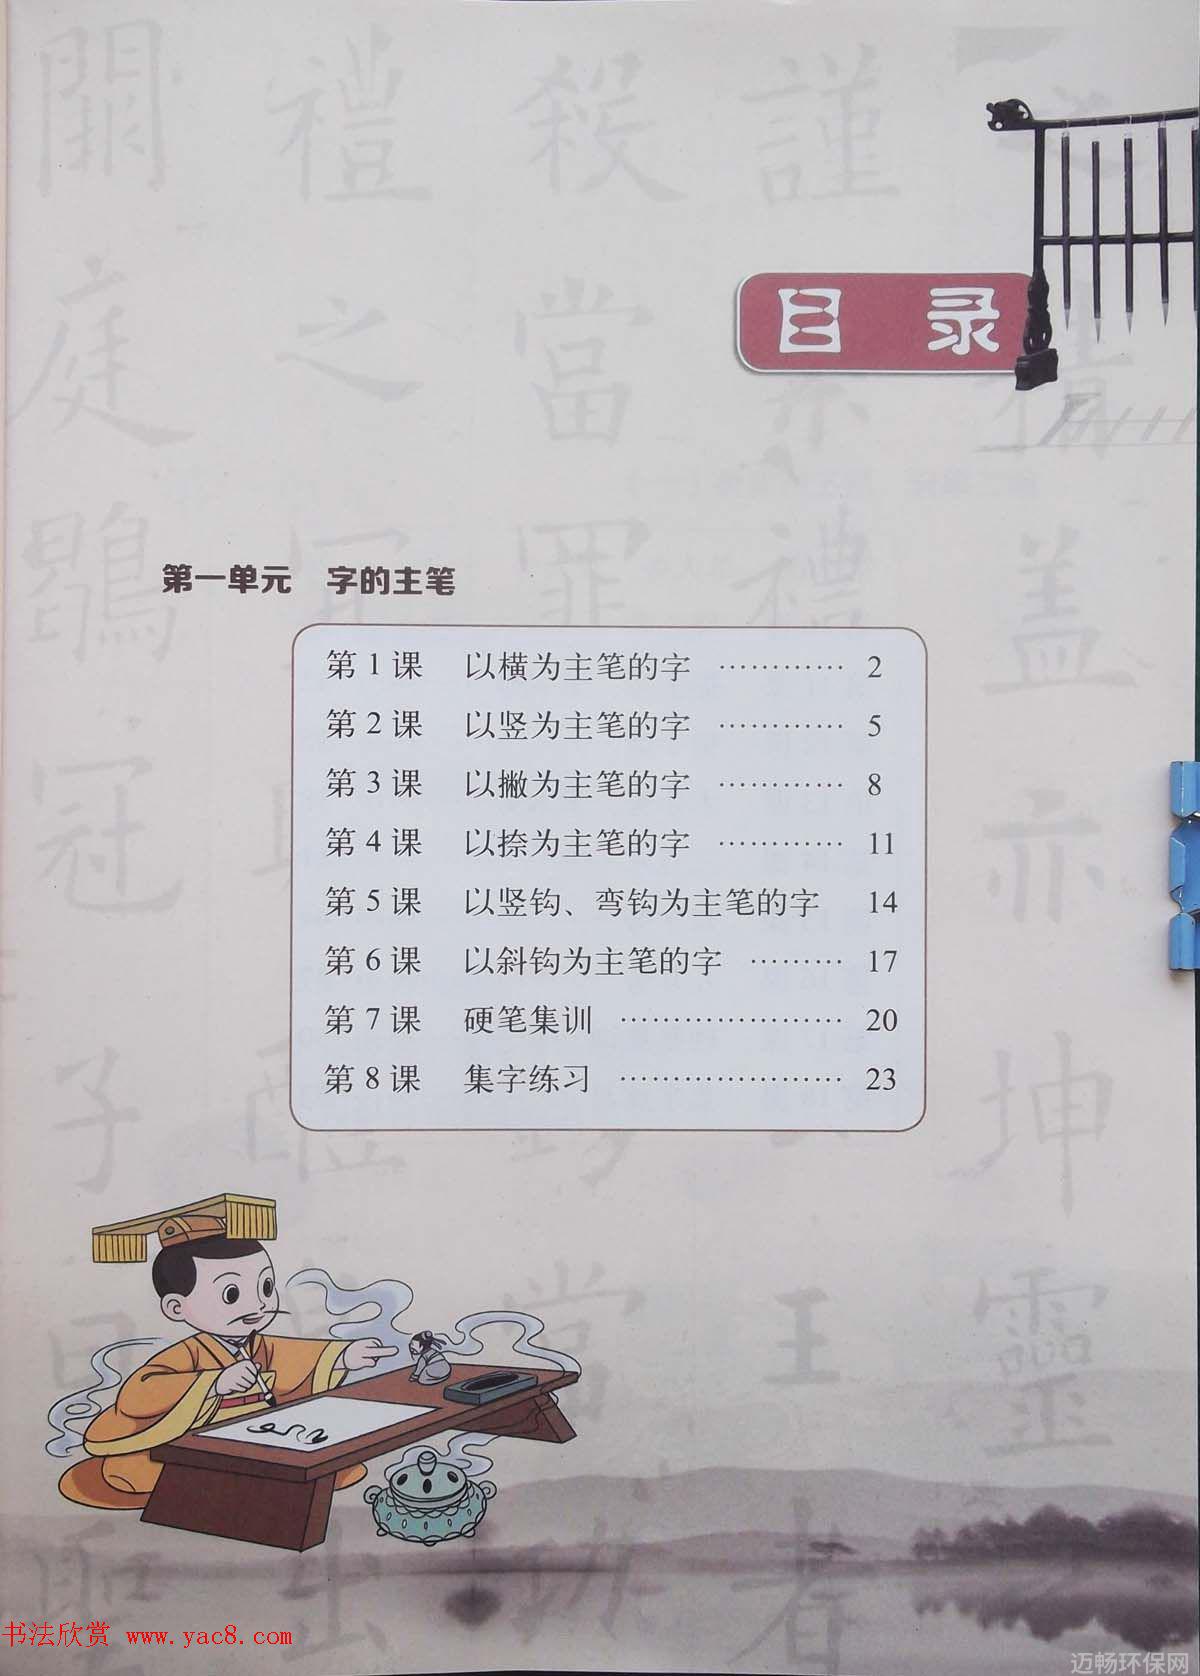 目 录
第一单元 字的主笔
第1课 以横为主笔的字 ………… 2
第2课 以竖为主笔的字 ………… 5
第3课 以撇为主笔的字 ………… 8
第4课 以捺为主笔的字 ………… 11
第5课 以竖钩、弯钩为主笔的字 14
第6课 以斜钩为主笔的字 ……… 17
第7课 硬笔集训 ………………… 20
第8课 集字练习 ………………… 23
书法欣赏 www.yac8.com
迈畅环保网